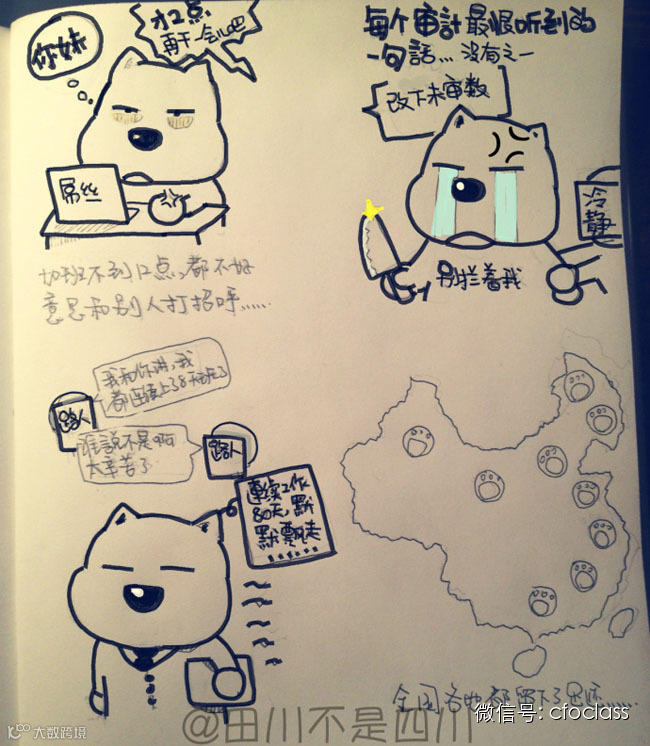 你妹
才12点
再干一会儿吧
屌丝
加班不到12点,都不好
意思和别人打招呼……
每个审計最恨听到的
一句話…没有之一
改下未审数
冷靜
别拦着我
我和你讲,我
都连续上了8天班了
路人
谁說不是啊
太辛苦了
路人
連续工作
80天,默
默飄走
全国各地都留下了足迹……
微信号: cfoclass
@田川不是四川
大数跨境